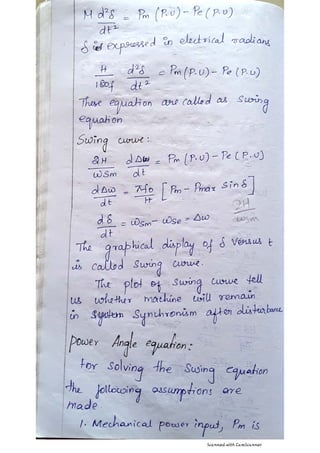 M d²δ/dt² = Pm (P.U) - Pe (P.U)
δ is expressed in electrical radians
H/180f d²δ/dt² = Pm (P.U) - Pe (P.U)
These equation are called as swing
equation
Swing curve:
2H/wsm dΔw/dt = Pm (P.U) - Pe (P.U)
dΔw/dt = πfo/H [Pm - Pmax Sin δ]
dδ/dt = wsm - wse = Δw
The graphical display of δ versus t
is called swing curve.
The plot of swing curve tell
us whether machine will remain
in system Synchronism after disturbance
Power Angle equation:
For Solving the Swing equation
the following assumptions are
made
1. Mechanical power input, Pm is
Scanned with CamScanner